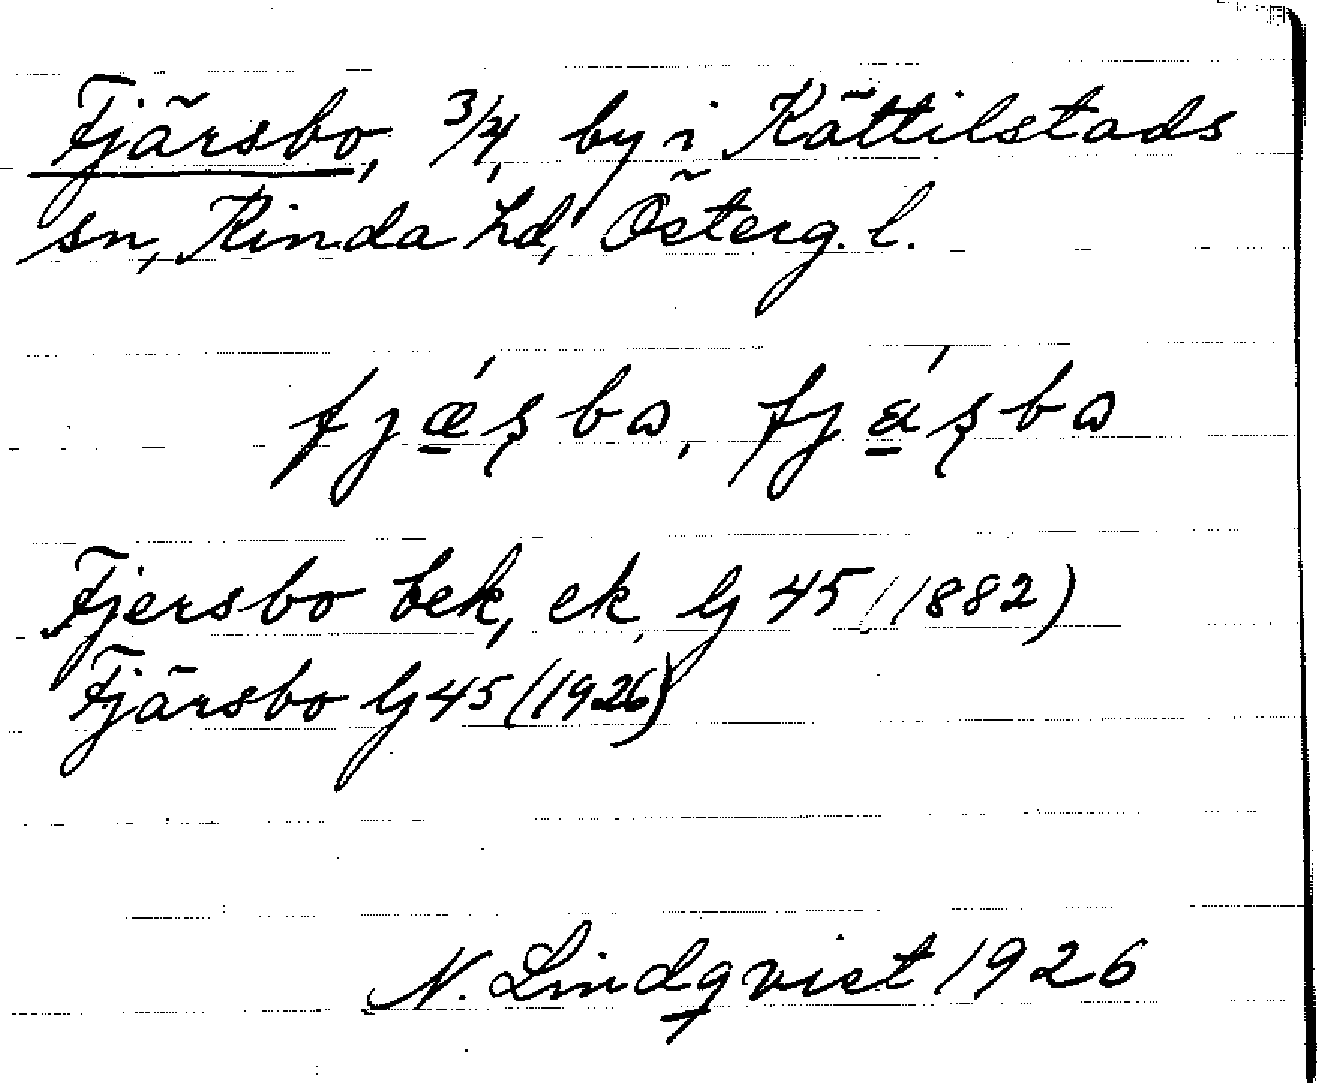 Fjärsbo, 3/4, by i Kättilstads
sn, Kinda hd, Österg. l.
fjǽ̱ʂbo, fjá̱ʂbo
Fjersbo bek, ek, Gj 45 (1882)
Fjärsbo Gj 45 (1926)
N. Lindqvist 1926